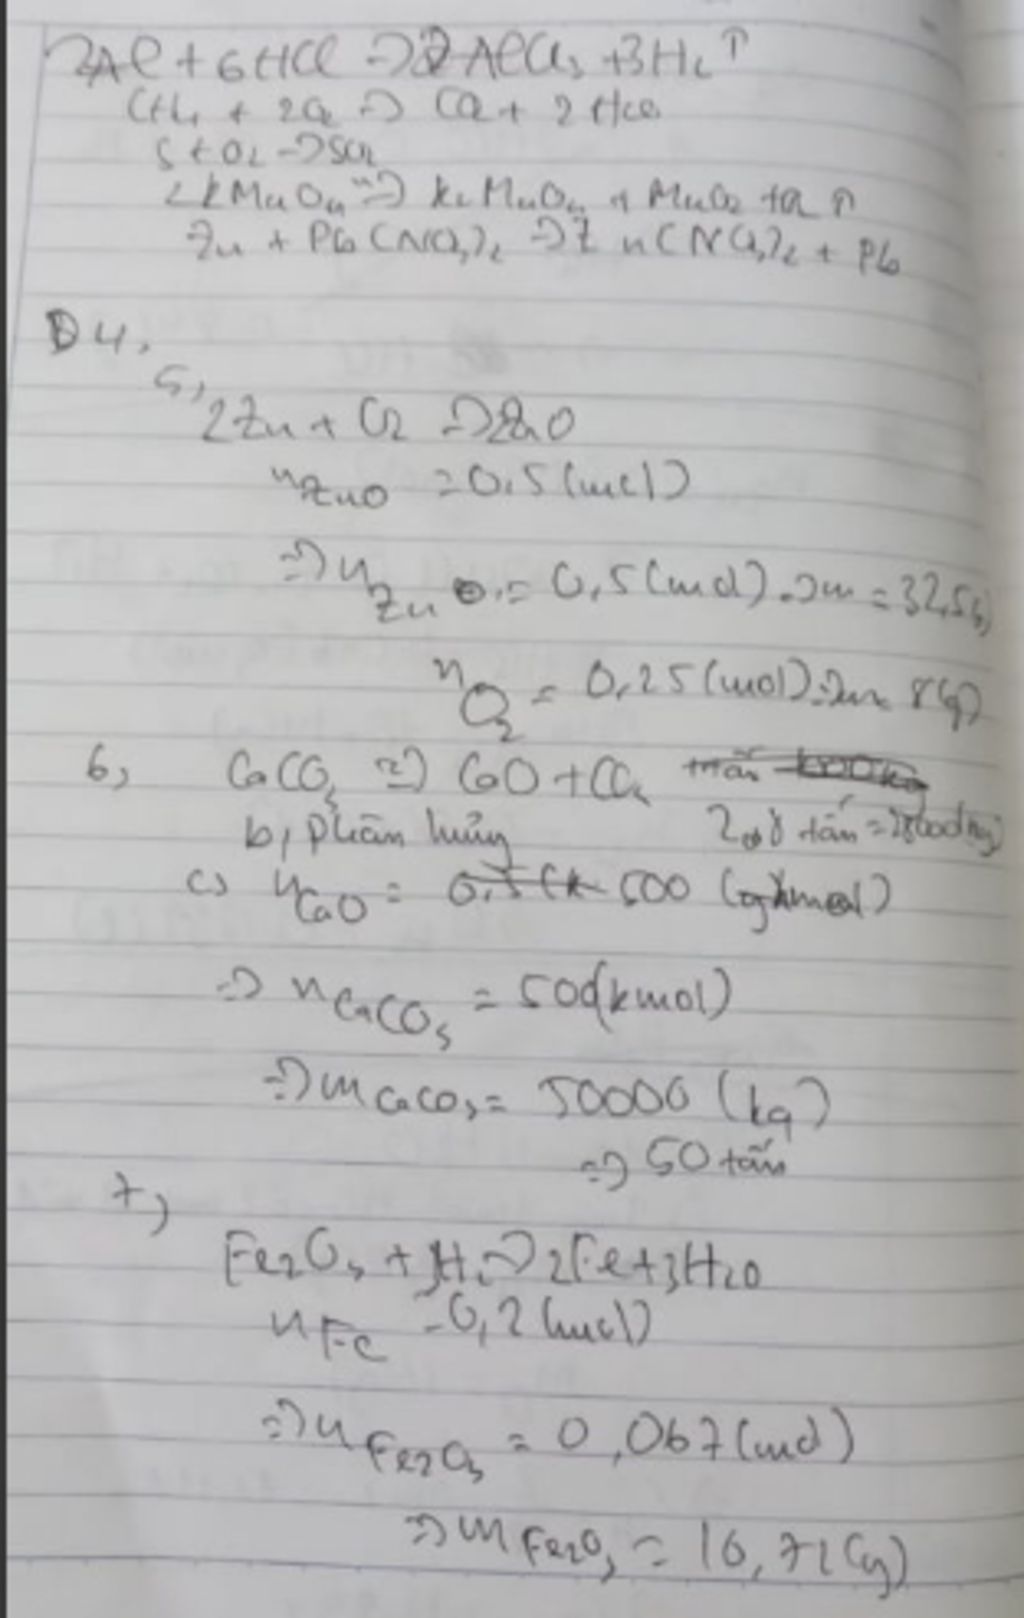 2Al + 6HCl => 2AlCl₃ + 3H₂ ↑
CH₄ + 2O₂ => CO₂ + 2H₂O
S + O₂ -> SO₂
2KMnO₄ => K₂MnO₄ + MnO₂ + O₂ ↑
Zn + Pb(NO₃)₂ => Zn(NO₃)₂ + Pb
D4,
5,
2Zn + O₂ => 2ZnO
n ZnO = 0,5 (mol)
=> n Zn = 0,5 (mol) => m = 32,5 (g)
n O₂ = 0,25 (mol) => m = 8 (g)
6, CaCO₃ => CaO + CO₂
b, phân hủy 2,8 tấn = 28000 (kg)
c) n CaO = 500 (kmol)
=> n CaCO₃ = 500 (kmol)
=> m CaCO₃ = 50000 (kg)
=> 50 tấn
7,
Fe₂O₃ + 3H₂ => 2Fe + 3H₂O
n Fe = 0,2 (mol)
=> n Fe₂O₃ = 0,067 (mol)
=> m Fe₂O₃ = 10,72 (g)